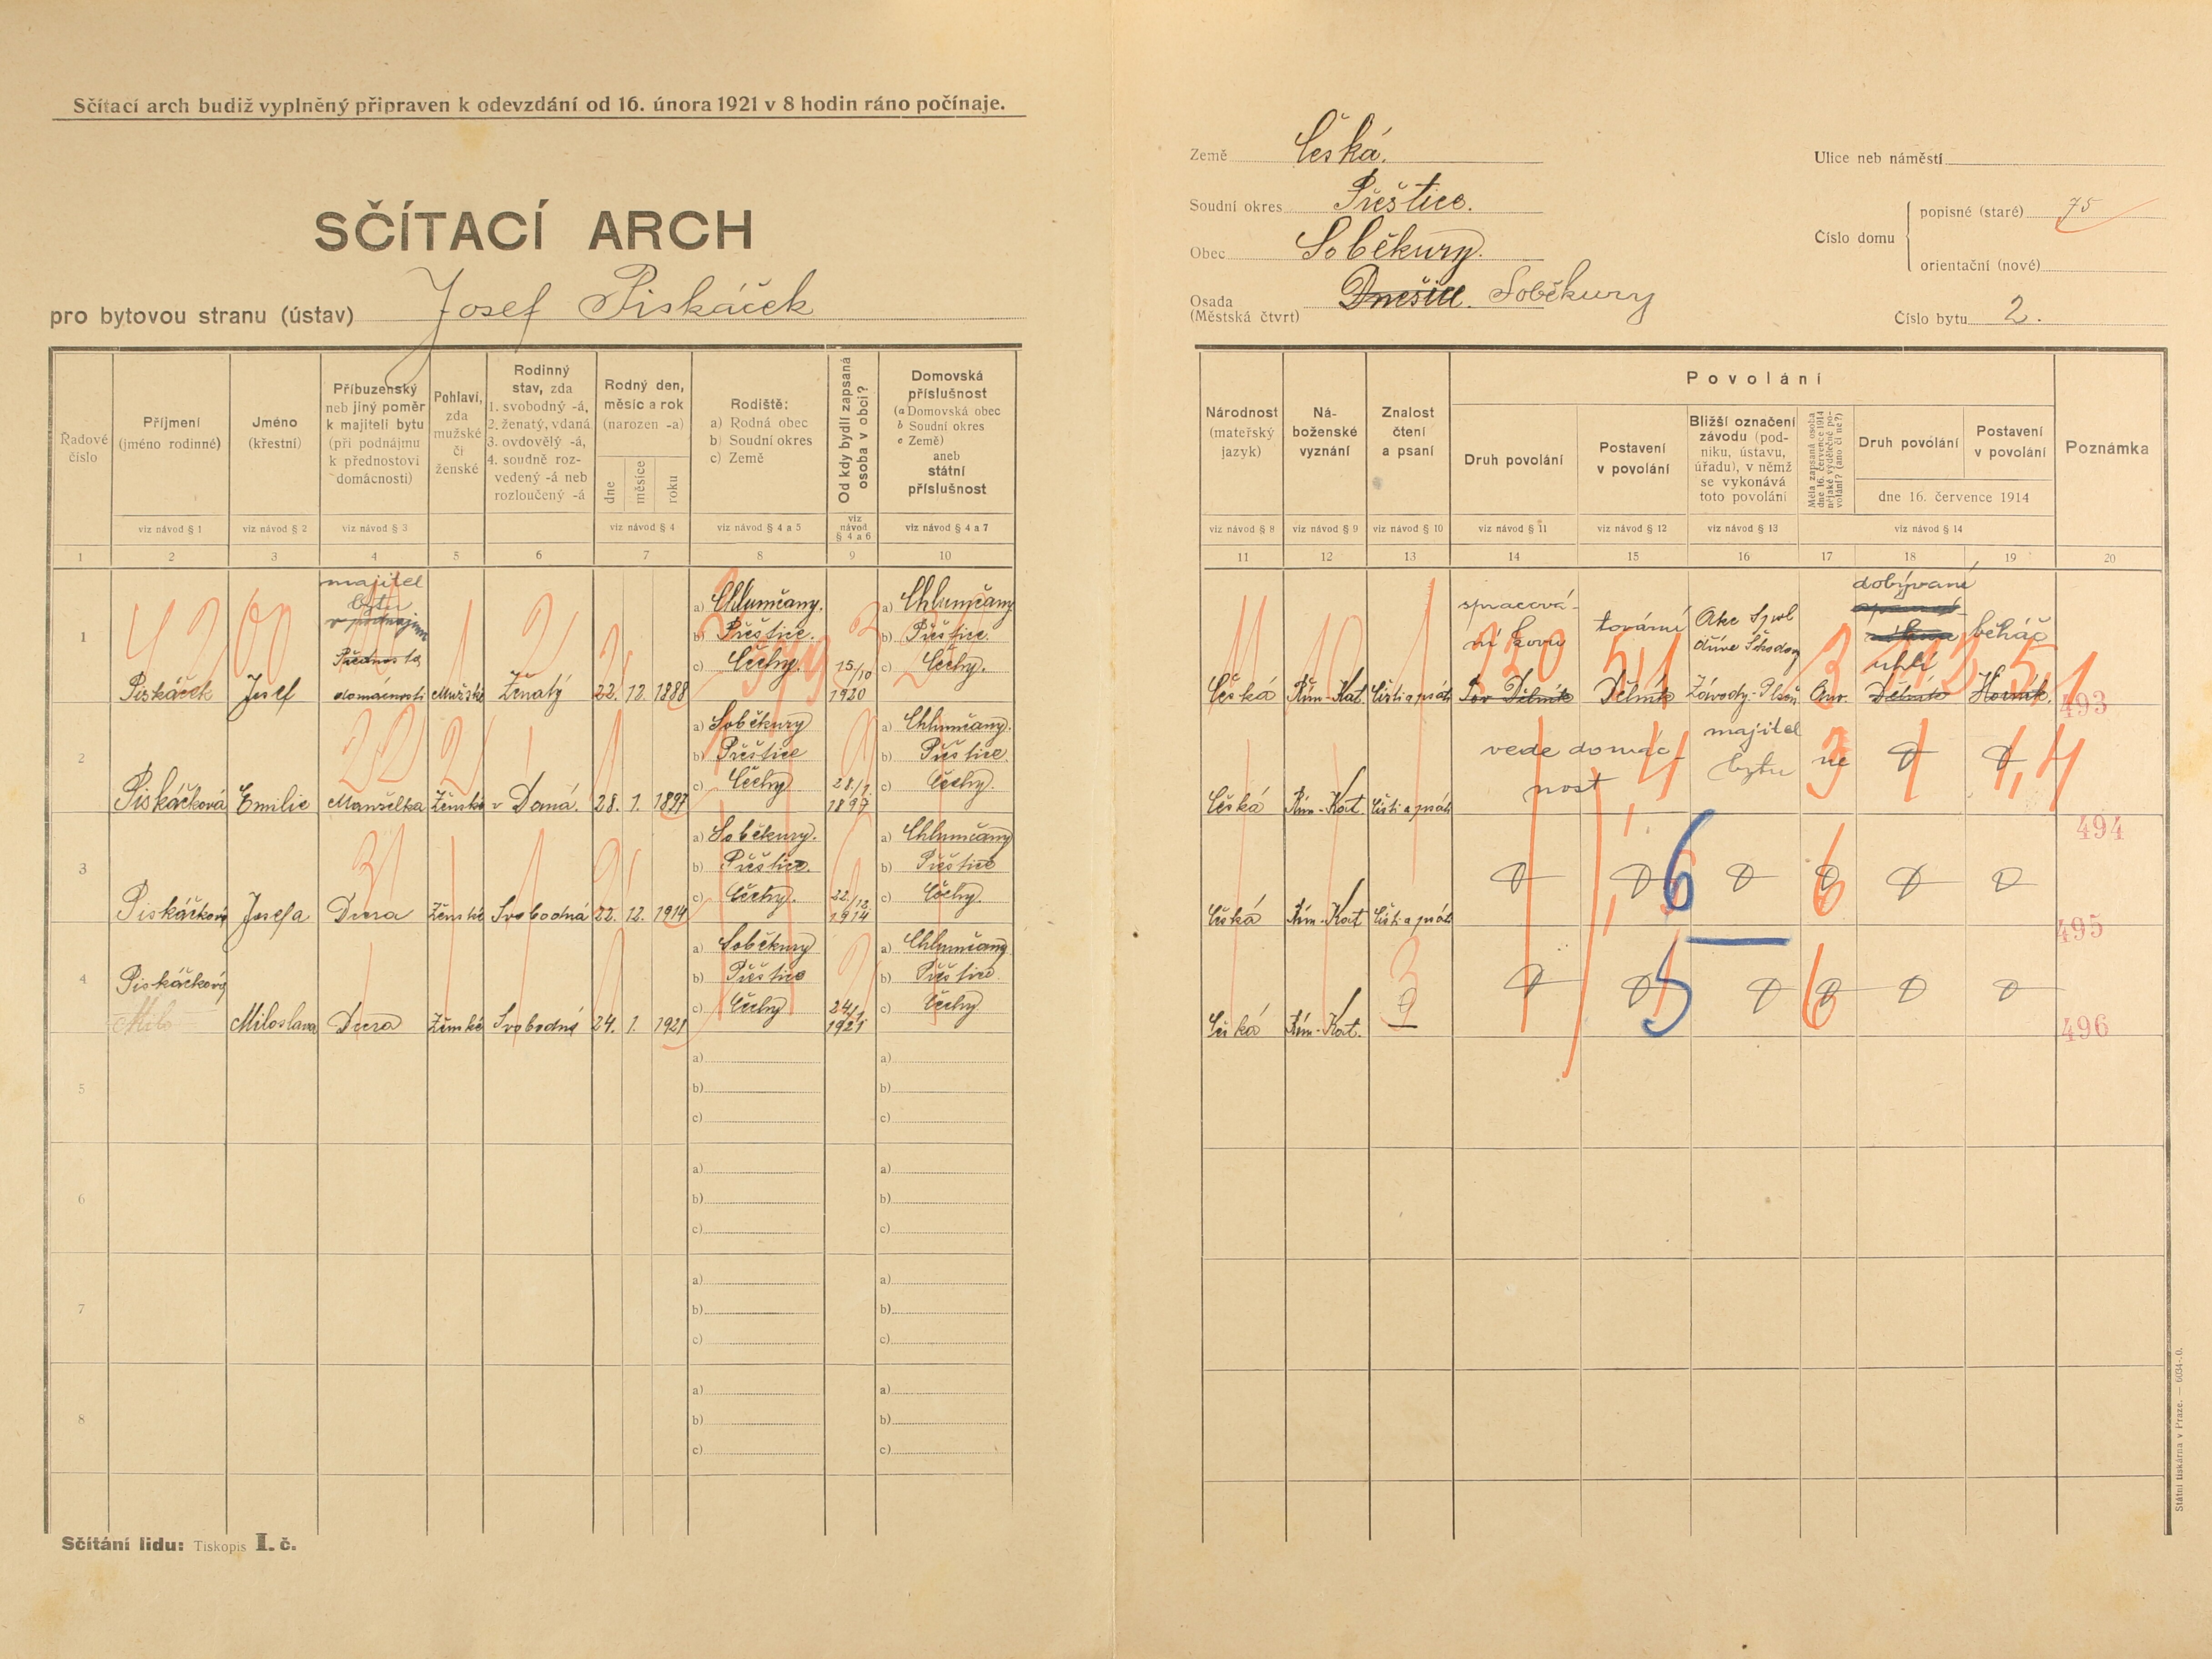 Sčítací arch budiž vyplněný připraven k odevzdání od 16. února 1921 v 8 hodin ráno počínaje.
SČÍTACÍ ARCH
pro bytovou stranu (ústav) Josef Piskáček
Země Česká.
Soudní okres Přeštice.
Obec Soběkury.
Osada (Městská čtvrt) Dnešice. Soběkury
Ulice neb náměstí
Číslo domu
popisné (staré) 75
orientační (nové)
Číslo bytu 2.
Řadové číslo
Příjmení (jméno rodinné)
Jméno (křestní)
Příbuzenský neb jiný poměr k majiteli bytu (při podnájmu k přednostovi domácnosti)
Pohlaví, zda mužské či ženské
Rodinný stav, zda 1. svobodný -á, 2. ženatý, vdaná 3. ovdovělý -á, 4. soudně rozvedený -á neb rozloučený -á
Rodný den, měsíc a rok (narozen -a)
dne měsíce roku
Rodiště: a) Rodná obec b) Soudní okres c) Země
Od kdy bydlí zapsaná osoba v obci?
Domovská příslušnost (a Domovská obec b Soudní okres c Země) aneb státní příslušnost
viz návod § 1 viz návod § 2 viz návod § 3 viz návod § 4 viz návod § 4 a 5 viz návod § 4 a 6 viz návod § 4 a 7
1 2 3 4 5 6 7 8 9 10
Národnost (mateřský jazyk)
Náboženské vyznání
Znalost čtení a psaní
Povolání
Druh povolání
Postavení v povolání
Bližší označení závodu (podniku, ústavu, úřadu), v němž se vykonává toto povolání
Měla zapsaná osoba dne 16. července 1914 nějaké výdělečné povolání? (ano či ne?)
Druh povolání
Postavení v povolání
dne 16. července 1914
Poznámka
viz návod § 8 viz návod § 9 viz návod § 10 viz návod § 11 viz návod § 12 viz návod § 13 viz návod § 14
11 12 13 14 15 16 17 18 19 20
1 Piskáček Josef majitel bytu Přednosta domácnosti Mužské Ženatý 22. 12. 1888
a) Chlumčany.
b) Přeštice.
c) Čechy.
15/10 1920
a) Chlumčany
b) Přeštice.
c) Čechy.
Česká Řím-Kat. Čísti a psáti
spracování kovu
Tov Dělník
tovární Dělník
Akc Spol dříve Škodovy Závody-Plzeň
Ano.
dobývání uhlí
Dělník
běháč
Horník.
493
2 Piskáčková Emilie Manželka Ženské v Daná. 28. 1. 1897
a) Soběkury
b) Přeštice
c) Čechy
28/1. 1897
a) Chlumčany.
b) Přeštice.
c) Čechy.
Česká Řím-Kat. Čísti a psáti
vede domácnost
majitel bytu
ne
494
3 Piskáčková Josefa Dcera Ženské Svobodná 22. 12. 1914
a) Soběkury.
b) Přeštice.
c) Čechy.
22./12. 1914
a) Chlumčany
b) Přeštice
c) Čechy.
Česká Řím-Kat Čísti a psáti
6
495
4 Piskáčková Miloslava Dcera Ženské Svobodná 24. 1. 1921
Milo
a) Soběkury
b) Přeštice
c) Čechy
24/1 1921
a) Chlumčany
b) Přeštice.
c) Čechy
Česká Řím-Kat.
5
496
5
a) a)
b) b)
c) c)
6
a) a)
b) b)
c) c)
7
a) a)
b) b)
c) c)
8
a) a)
b) b)
c) c)
Sčítání lidu: Tiskopis I. č.
Státní tiskárna v Praze. — 6034-.0.